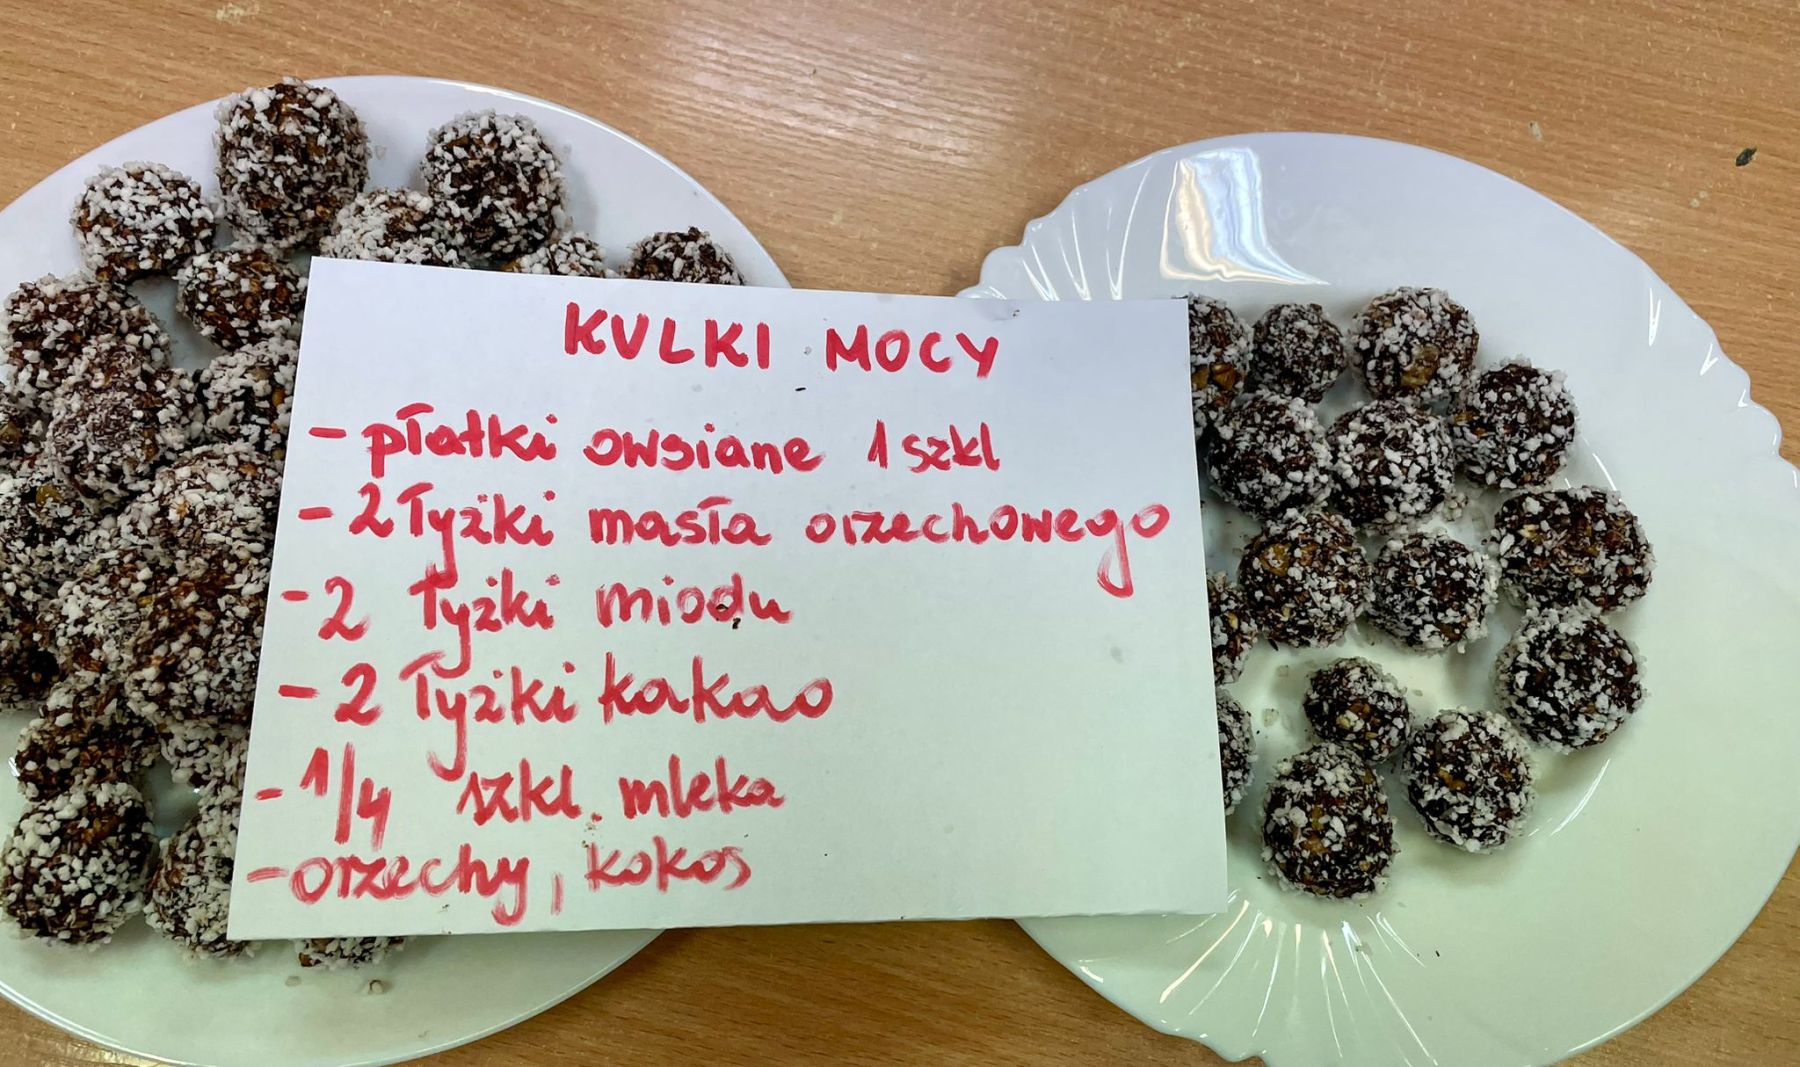 KULKI MOCY
- płatki owsiane 1 szkl
- 2 łyżki masła orzechowego
- 2 łyżki miodu
- 2 łyżki kakao
- 1/4 szkl. mleka
- orzechy, kokos